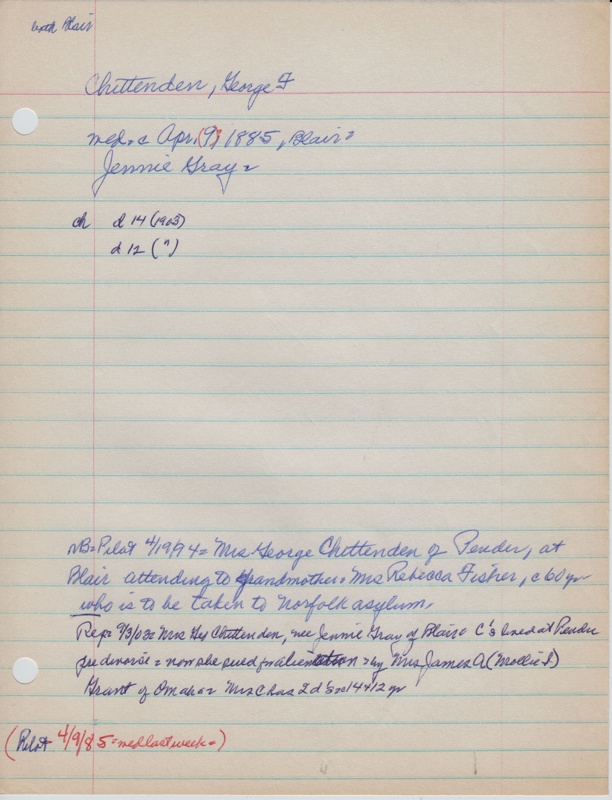 both Blair
Chittenden, George F
med = c Apr. (9?) 1885, Blair =
Jennie Gray =
ch d 14 (1903)
d 12 (")
NB = Pilot 4/19/94 = Mrs George Chittenden of Pender, at
Blair attending to grandmother = Mrs Rebecca Fisher, c 60 yr
who is to be taken to Norfolk asylum.
Rep = 9/3/03 = Mrs Geo Chittenden, nee Jennie Gray of Blair = C's lived at Pender
pre divorce = now she sued for alienation = by Mrs James A (Mollie F.)
Grant of Omaha = Mrs C has 2 d's = 14 + 12 yr
(Pilot 4/9/85 = med last week =)